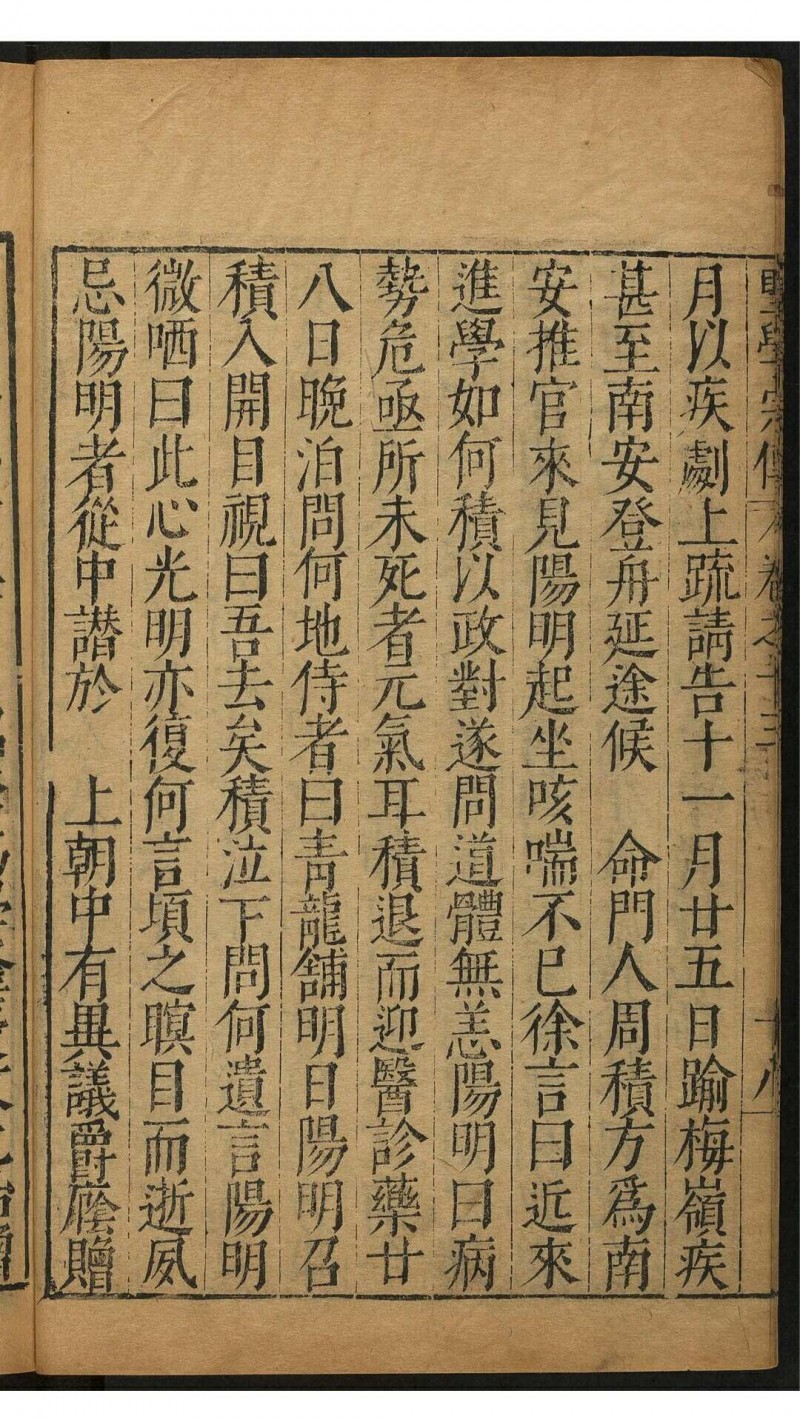 聖學宗傳 卷之十三 十八
月以疾劇上疏請告十一月廿五日踰梅嶺疾
甚至南安登舟延途候 命門人周積方爲南
安推官來見陽明起坐咳喘不已徐言曰近來
進學如何積以政對遂問道體無恙陽明曰病
勢危亟所未死者元氣耳積退而迎醫診藥廿
八日晚泊問何地侍者曰靑龍舖明日陽明召
積入開目視曰吾去矣積泣下問何遺言陽明
微哂曰此心光明亦復何言頃之瞑目而逝夙
忌陽明者從中譖於 上朝中有異議爵廕贈